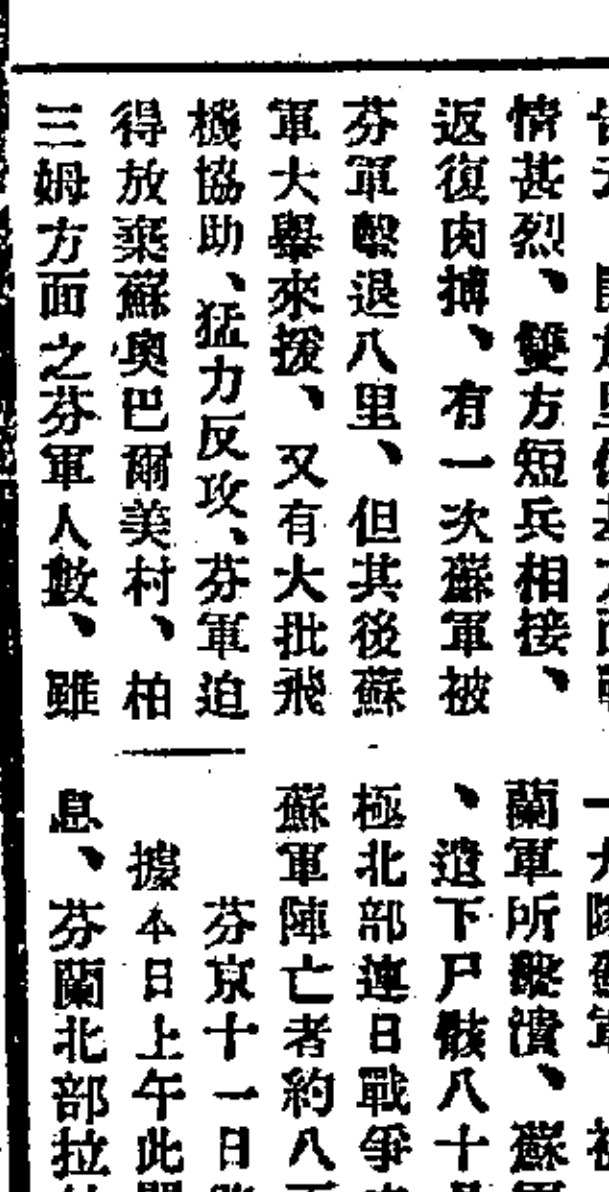 情甚烈、雙方短兵相接、
返復肉搏、有一次蘇軍被
芬軍擊退八里、但其後蘇
軍大舉來援、又有大批飛
機協助、猛力反攻、芬軍迫
得放棄蘇奧巴爾美村、柏
三姆方面之芬軍人數、雖
一大隊蘇軍
蘭軍所擊潰、蘇軍
、遺下尸骸八十
極北部連日戰爭
蘇軍陣亡者約八
芬京十一日
據本日上午此間
息、芬蘭北部拉